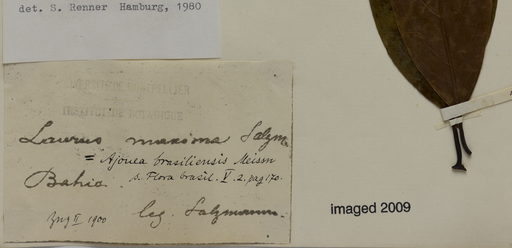 det. S. Renner Hamburg, 1980
INSTITUT DE BOTANIQUE
Laurus maxima Salzm.
= Ajouea brasiliensis Meisn
s. Flora brasil. V. 2. pag 170.
Bahia.
leg. Salzmann.
II 1900
imaged 2009